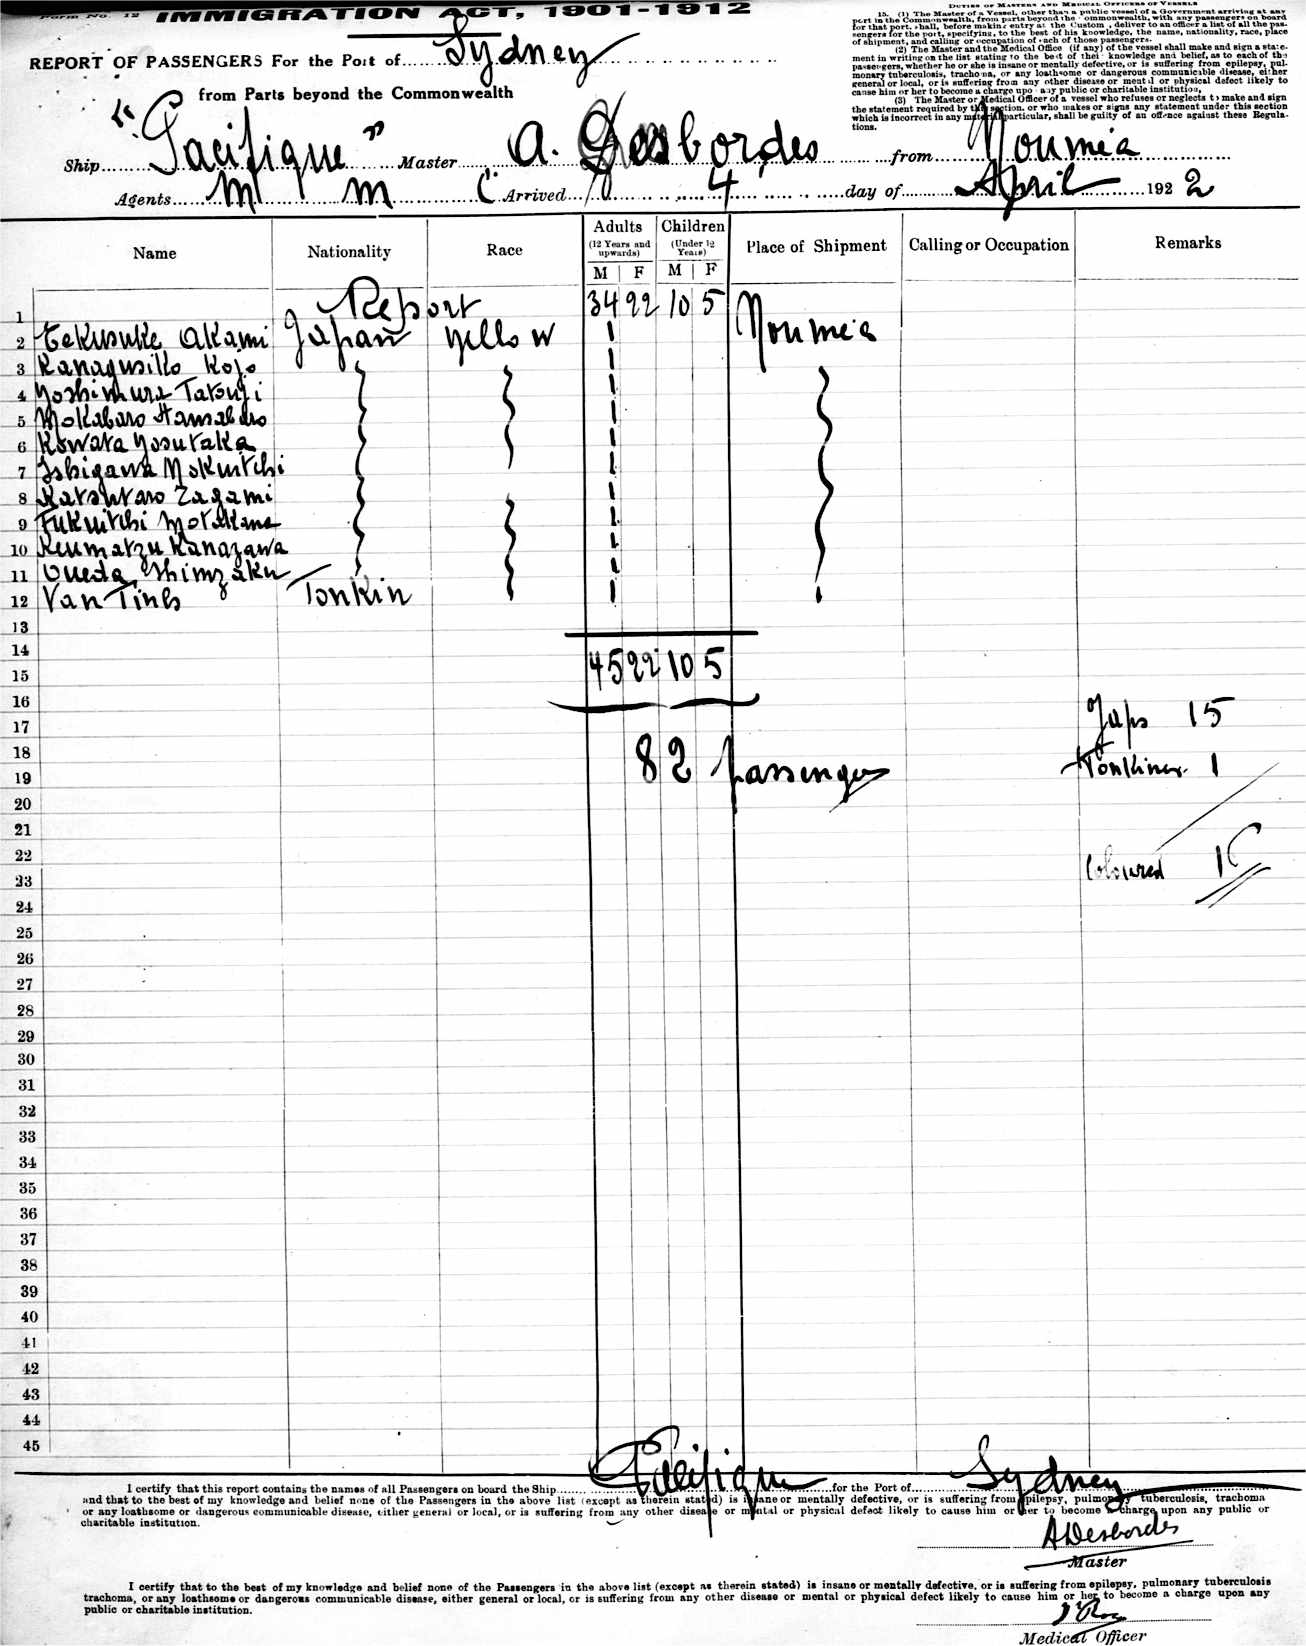 Form No. 12
IMMIGRATION ACT, 1901-1912
REPORT OF PASSENGERS For the Port of Sydney
from Parts beyond the Commonwealth
DUTIES OF MASTERS AND MEDICAL OFFICERS OF VESSELS
15. (1) The Master of a Vessel, other than a public vessel of a Government arriving at any
port in the Commonwealth, from parts beyond the ommonwealth, with any passengers on board
for that port, shall, before making entry at the Custom , deliver to an officer a list of all the pas-
sengers for the port, specifying, to the best of his knowledge, the name, nationality, race, place
of shipment, and calling or occupation of each of those passengers.
(2) The Master and the Medical Office (if any) of the vessel shall make and sign a state-
ment in writing on the list stating to the best of their knowledge and belief, as to each of the
passengers, whether he or she is insane or mentally defective, or is suffering from epilepsy, pul-
monary tuberculosis, trachoma, or any loathsome or dangerous communicable disease, either
general or local, or is suffering from any other disease or mental or physical defect likely to
cause him or her to become a charge upon any public or charitable institution.
(3) The Master or Medical Officer of a vessel who refuses or neglects to make and sign
the statement required by this section, or who makes or signs any statement under this section
which is incorrect in any material particular, shall be guilty of an offence against these Regula-
tions.
Ship "Pacifique" Master A. Desbordes from Nouméa
Agents M M C Arrived 4 day of April 1922
Name Nationality Race Adults (12 Years and upwards) M F Children (Under 12 Years) M F Place of Shipment Calling or Occupation Remarks
1 Report 34 22 10 5
2 Tekusuke Akami Japan yellow 1 Nouméa
3 Kanagusiko Kojo 1
4 Yoshimura Tatsuji 1
5 Mokabaro Hamabaro 1
6 Kowata Yosutaka 1
7 Ishigawa Mokuitchi 1
8 Katsutaro Zagami 1
9 Fukuitchi Motakana 1
10 Keumatzu Kanazawa 1
11 Oueda Shimzaku 1
12 Van Tinh Tonkin 1
13
14
15 45 22 10 5
16
17 Japs 15
18
19 82 passengers Tonkines 1
20
21
22 Coloured
23
24
25
26
27
28
29
30
31
32
33
34
35
36
37
38
39
40
41
42
43
44
45
I certify that this report contains the names of all Passengers on board the Ship Pacifique for the Port of Sydney
and that to the best of my knowledge and belief none of the Passengers in the above list (except as therein stated) is insane or mentally defective, or is suffering from epilepsy, pulmonary tuberculosis, trachoma
or any loathsome or dangerous communicable disease, either general or local, or is suffering from any other disease or mental or physical defect likely to cause him or her to become a charge upon any public or
charitable institution.
ADesbordes
Master
I certify that to the best of my knowledge and belief none of the Passengers in the above list (except as therein stated) is insane or mentally defective, or is suffering from epilepsy, pulmonary tuberculosis
trachoma, or any loathsome or dangerous communicable disease, either general or local, or is suffering from any other disease or mental or physical defect likely to cause him or her to become a charge upon any
public or charitable institution.
Medical Officer